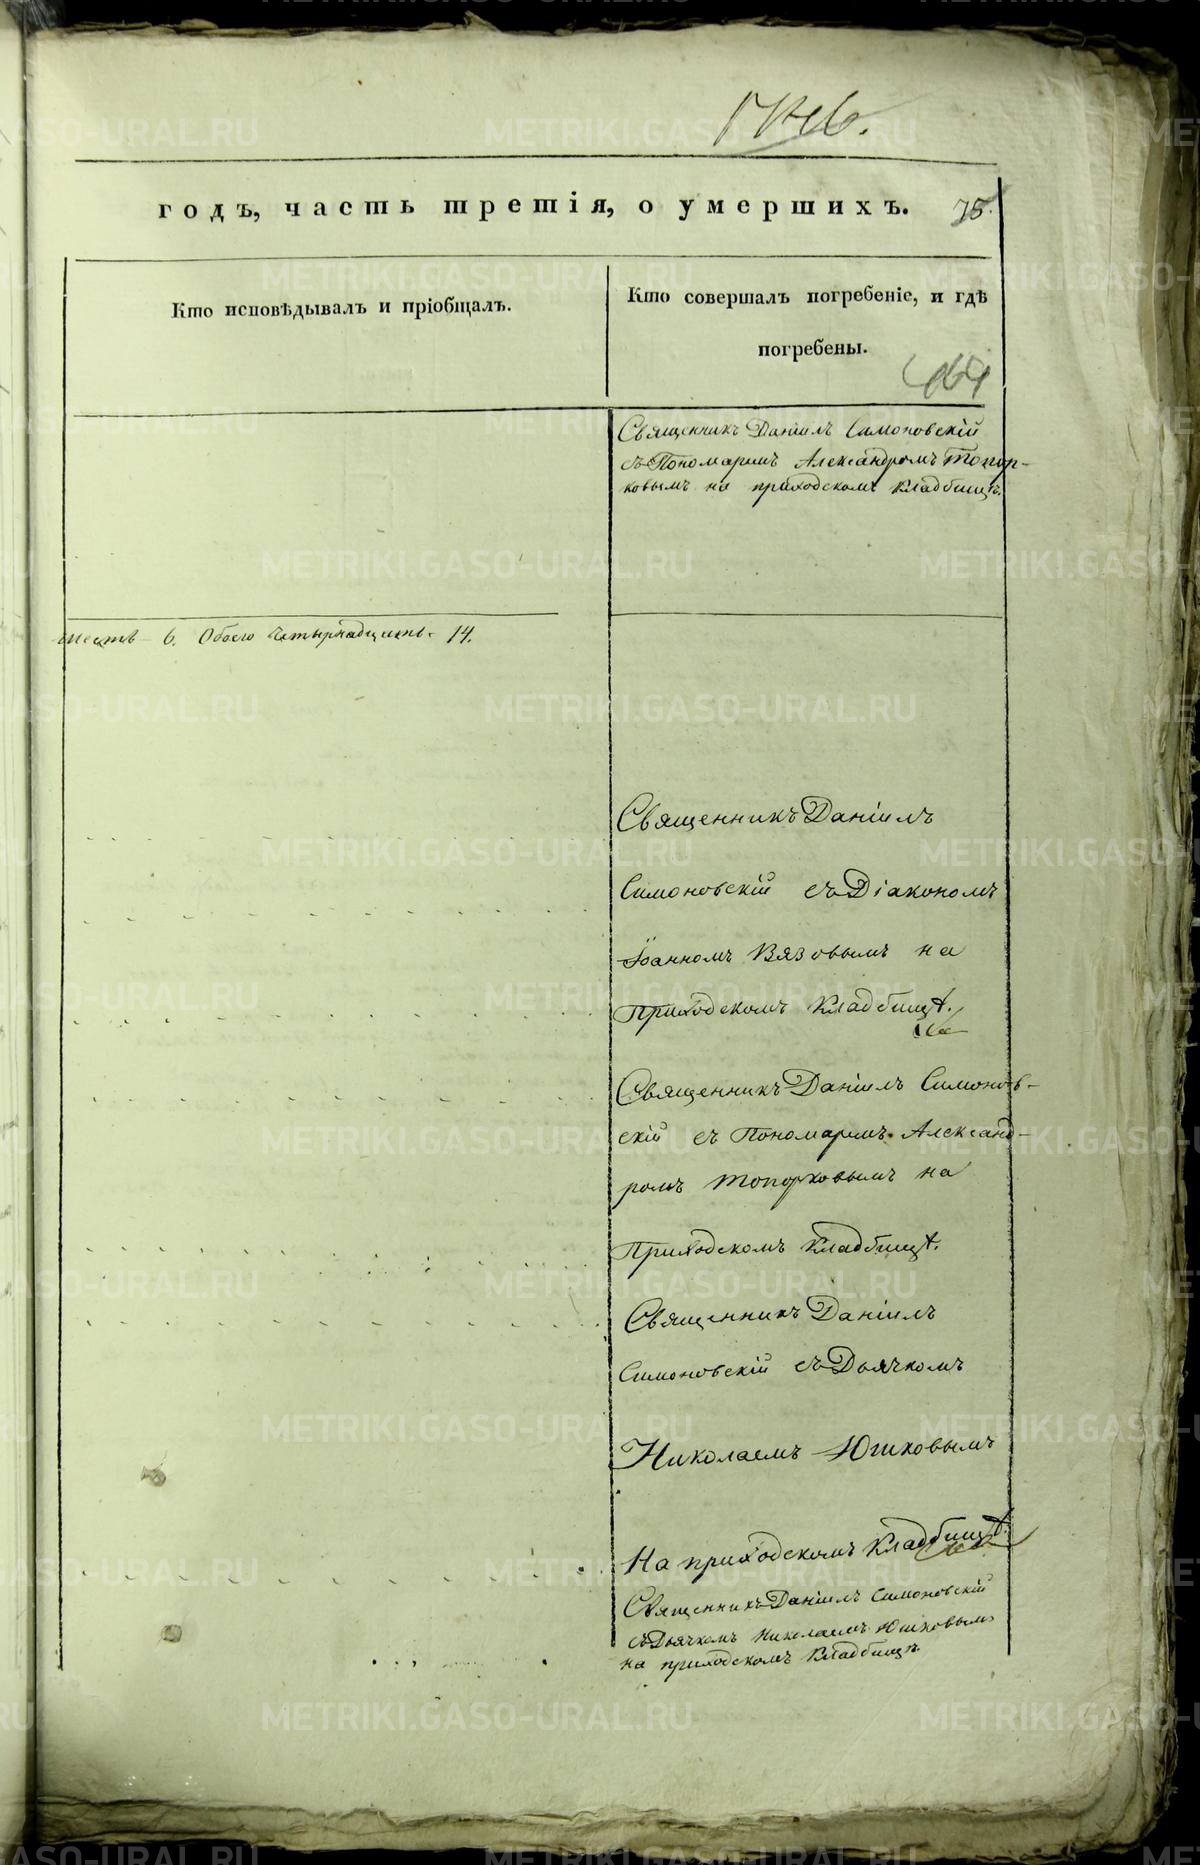 годъ, часть третія, о умершихъ. 75.
Кто исповѣдывалъ и пріобщалъ.
Кто совершалъ погребеніе, и гдѣ
погребены.
Священникъ Даніилъ Симоновскій
съ Пономаремъ Александромъ Топор-
ковымъ на приходскомъ кладбищѣ.
шесть 6. Обоего четырнадцать 14.
Священникъ Даніилъ
Симоновскій съ Діакономъ
Іоанномъ Вязовымъ на
Приходскомъ кладбищѣ.
Священникъ Даніилъ Симонов-
скій съ Пономаремъ Александ-
ромъ Топорковымъ на
Приходскомъ кладбищѣ.
Священникъ Даніилъ
Симоновскій съ Дьячкомъ
Николаемъ Юшковымъ
На приходскомъ кладбищѣ.
Священникъ Даніилъ Симоновскій
съ Дьячкомъ Николаемъ Юшковымъ
на приходскомъ кладбищѣ.
METRIKI.GASO-URAL.RU